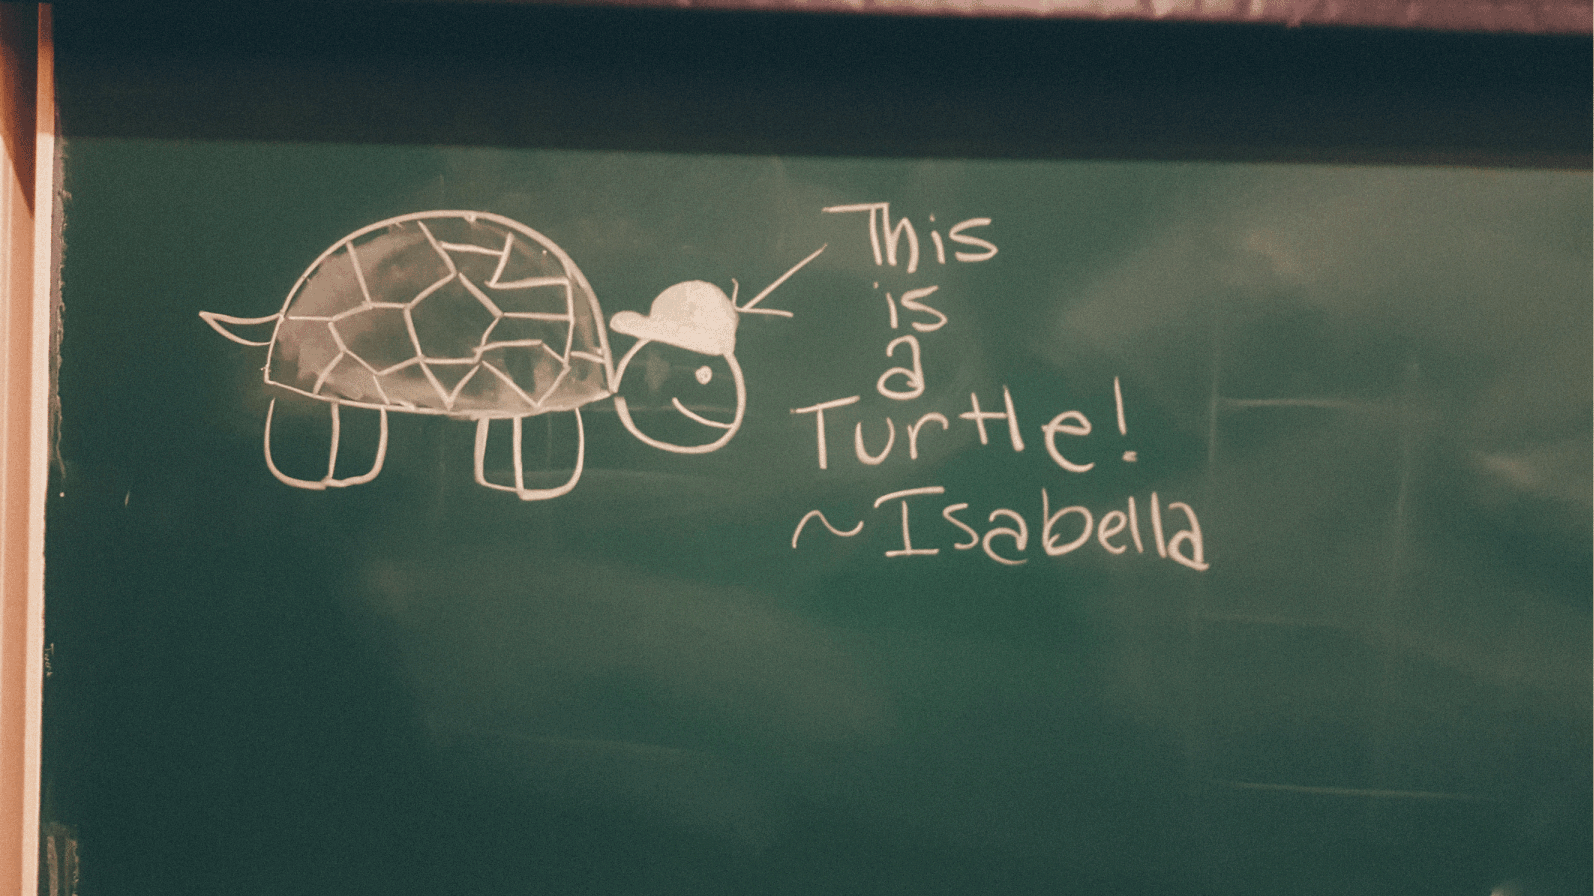 This
is
a
Turtle!
~Isabella